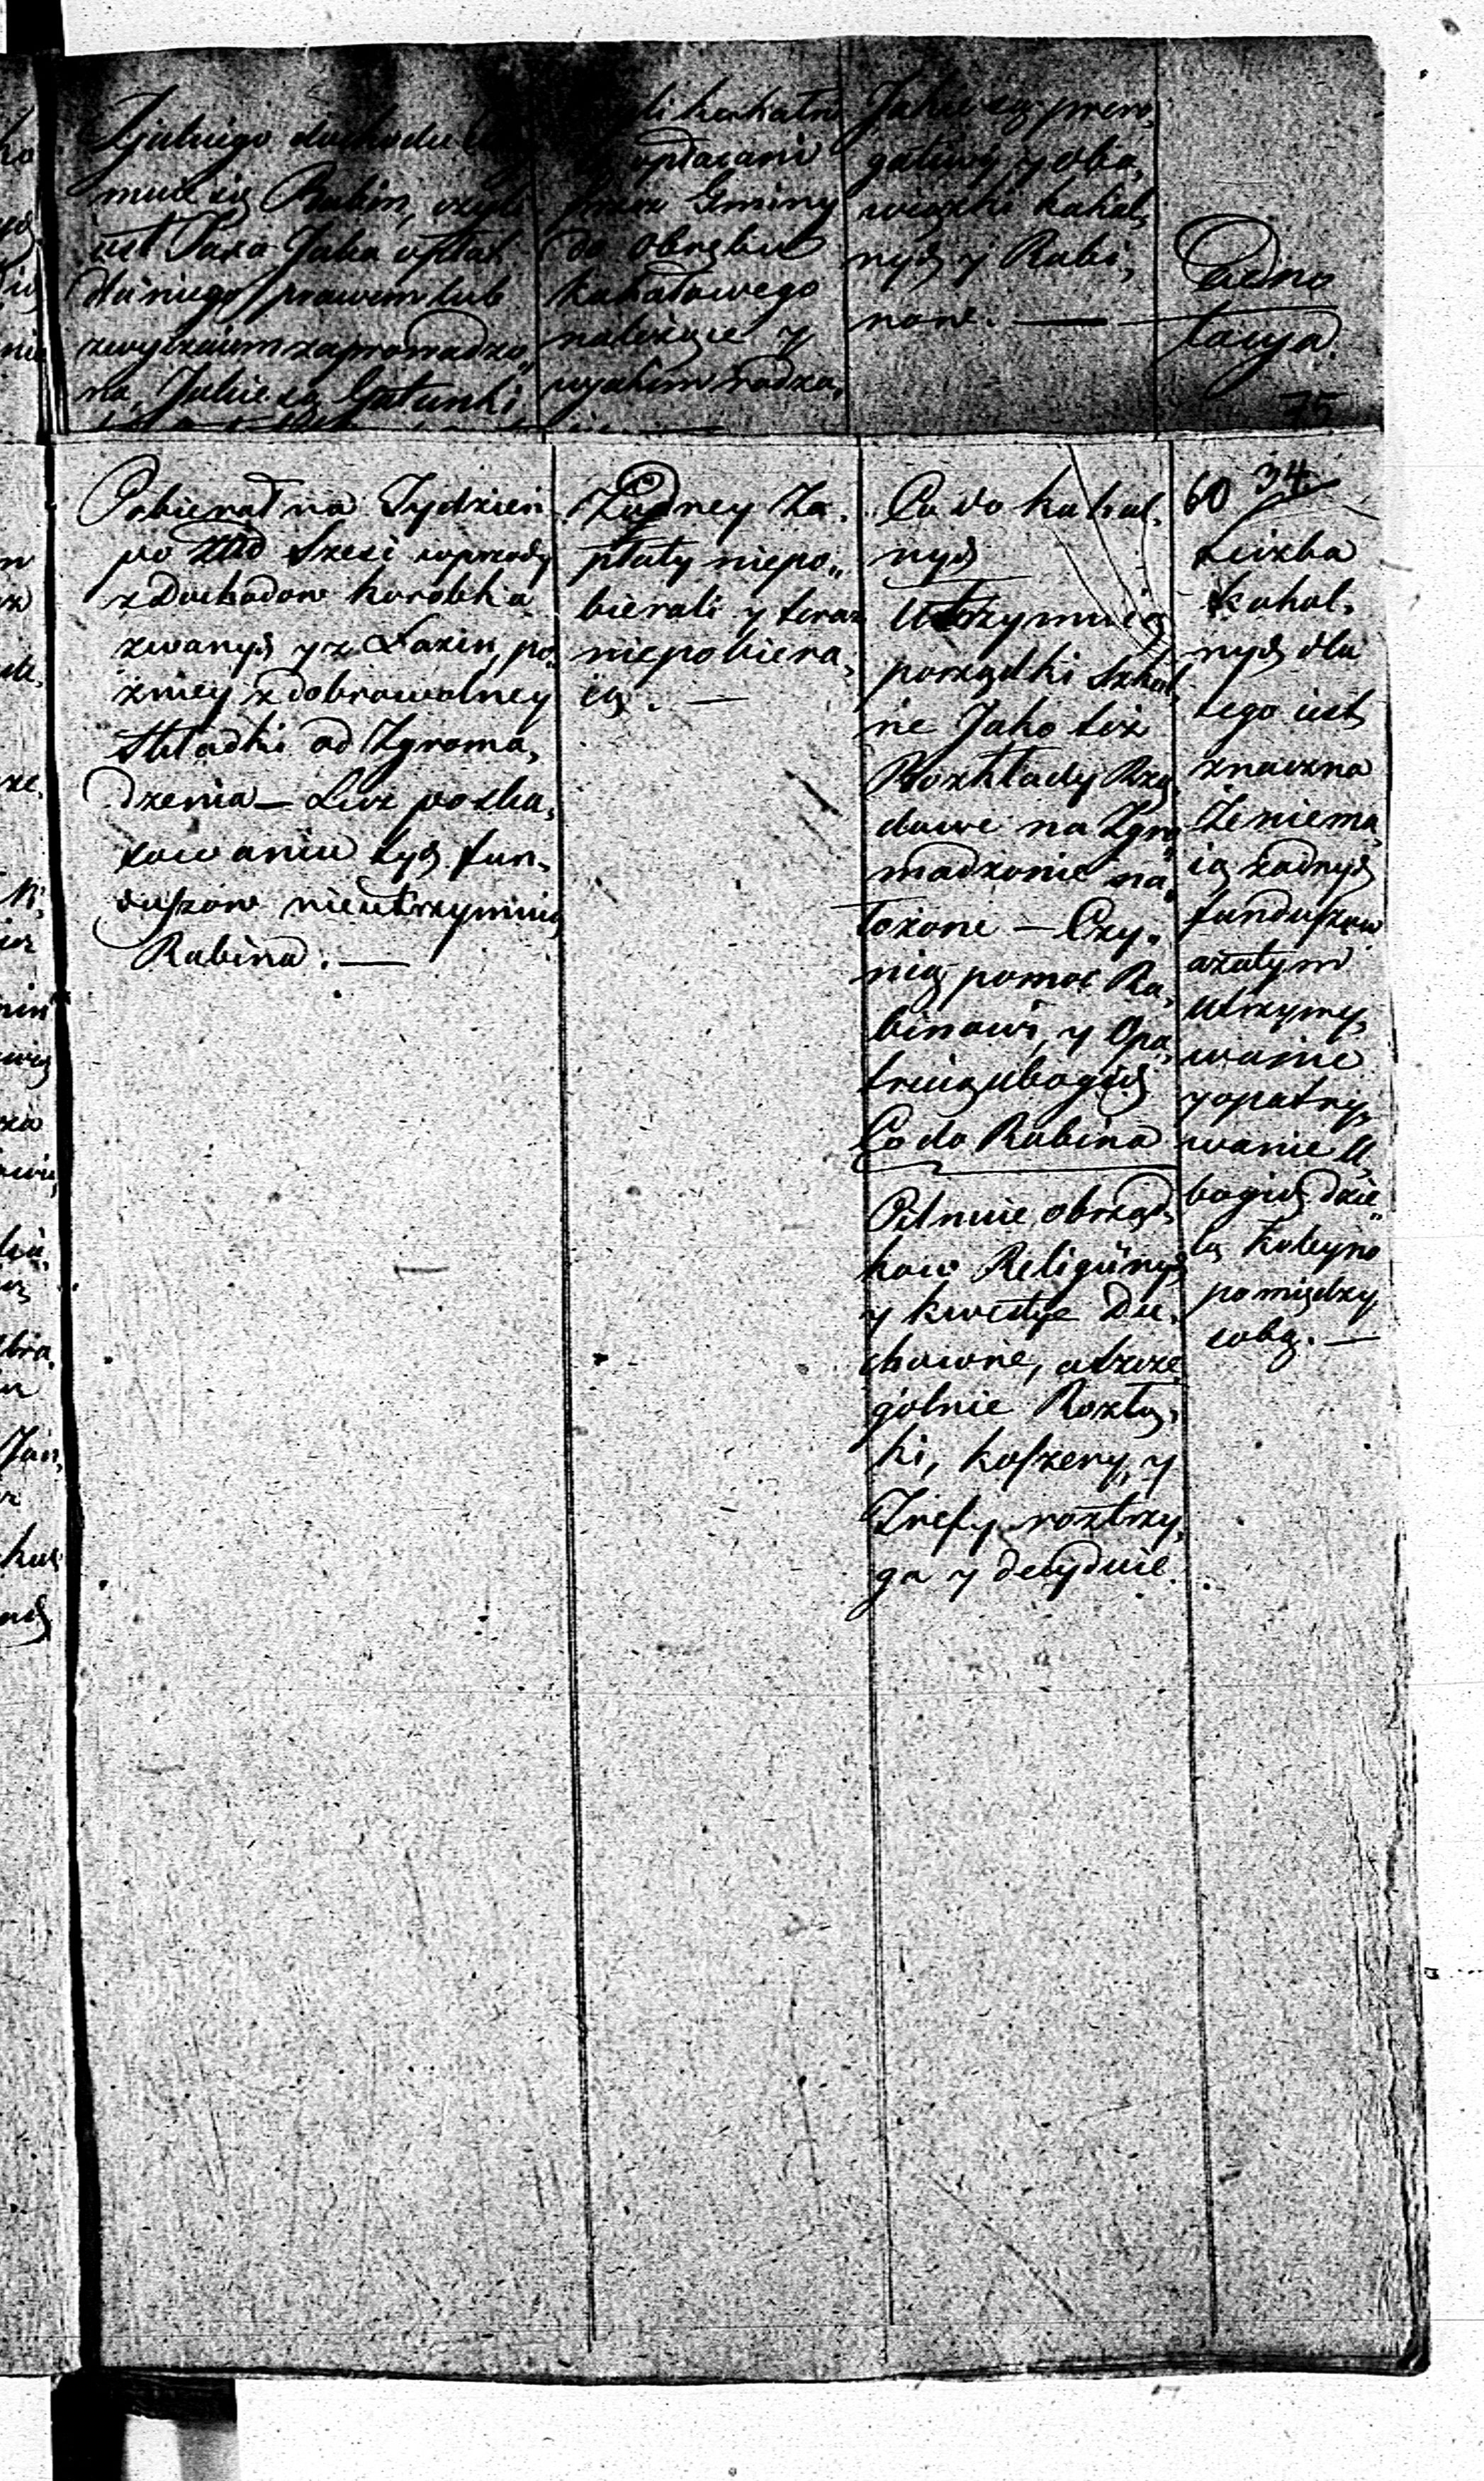 Zjakiego dochodu
muie się Rabin, czyli
iest Taxa Jaka opłat
dla niego prawem lub
zwyczaiem zaprowadzo„
na, Jakie są Gatunki
li kahalni
opłacani
przez Gminy
do obrębu
kahałowego
należące y
w jakim rodza„
Jakie są prero„
gatiwy y obo„
wiązki kahal„
nych y Rabi„
now. —
Adno
tacya.
75
Pobierał na Tydzień
po Złło Sześć wprzody
z Dochodow korobka
zwanych y z Łazien, po„
zniey z dobrowolney
składki od Zgroma„
dzenia — Lecz po ska„
sowaniu tych fun„
duszow nieutrzymuią
Rabina. —
Żadney Za„
płaty niepo„
bierali y teraz
niepobiera„
ią. —
Co do kahal„
nych
Utrzymuią
porządki szkol„
ne Jako też
Rozkłady Rzą„
dowe na Zgro„
madzenie na„
łożone — Czy„
nią pomoc Ra„
binowi, y Opa„
truią ubogich
Co do Rabina
Pilnuie obrząd„
kow Religiinych
y kwestye Du„
chowne, a szcze
gólnie Rozłą„
ki, koszery, y
Trefy rozstrzy„
ga y decyduie.
60 34
Liczba
kahal„
nych dla
tego iest
znaczna
Że niema„
ią żadnych
funduszow
a zatym
utrzymy„
wanie
y opatry„
wanie U„
bogich dzie„
lą koleyno
pomiędzy
sobą. —